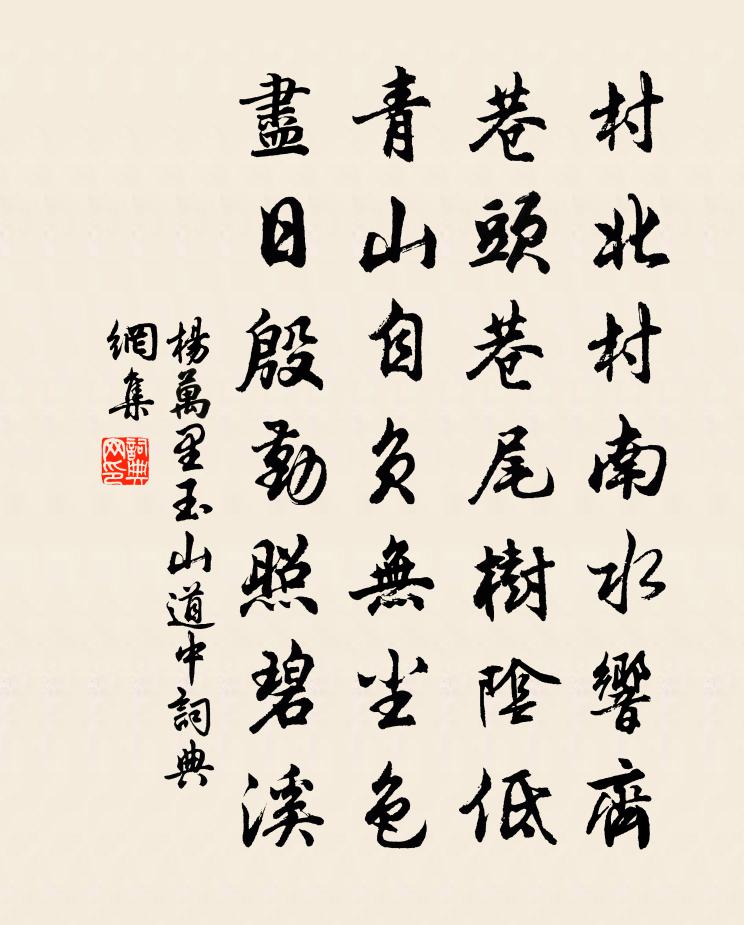 村北村南水響齊
巷頭巷尾樹陰低
青山自負無尘色
盡日殷勤照碧溪
楊萬里玉山道中詞典
網集
詞典
网印